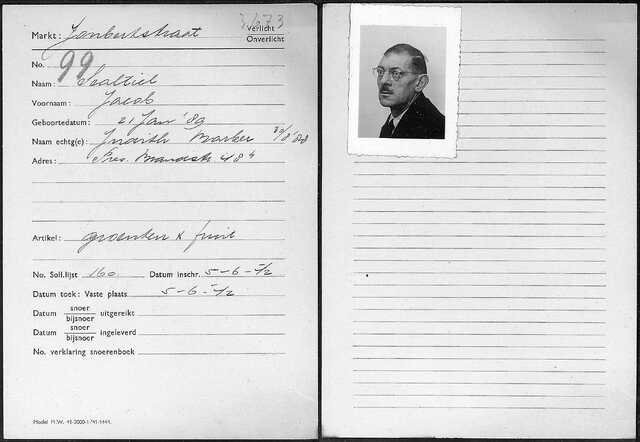 3/673
Markt: Joubertstraat
Verlicht
Onverlicht
No. 99
Naam: Sealtiel
Voornaam: Jacob
Geboortedatum: 21 Jan '89
Naam echtg(e): Judith Barber 30/8 '88
Adres: Pres. Brandstr 48 h
Artikel: groenten & fruit
No. Soll.lijst 160 Datum inschr. 5-6-'42
Datum toek: Vaste plaats 5-6-'42
Datum snoer / bijsnoer uitgereikt
Datum snoer / bijsnoer ingeleverd
No. verklaring snoerenboek
Model M.W. 41-2000-1-'41-1441.